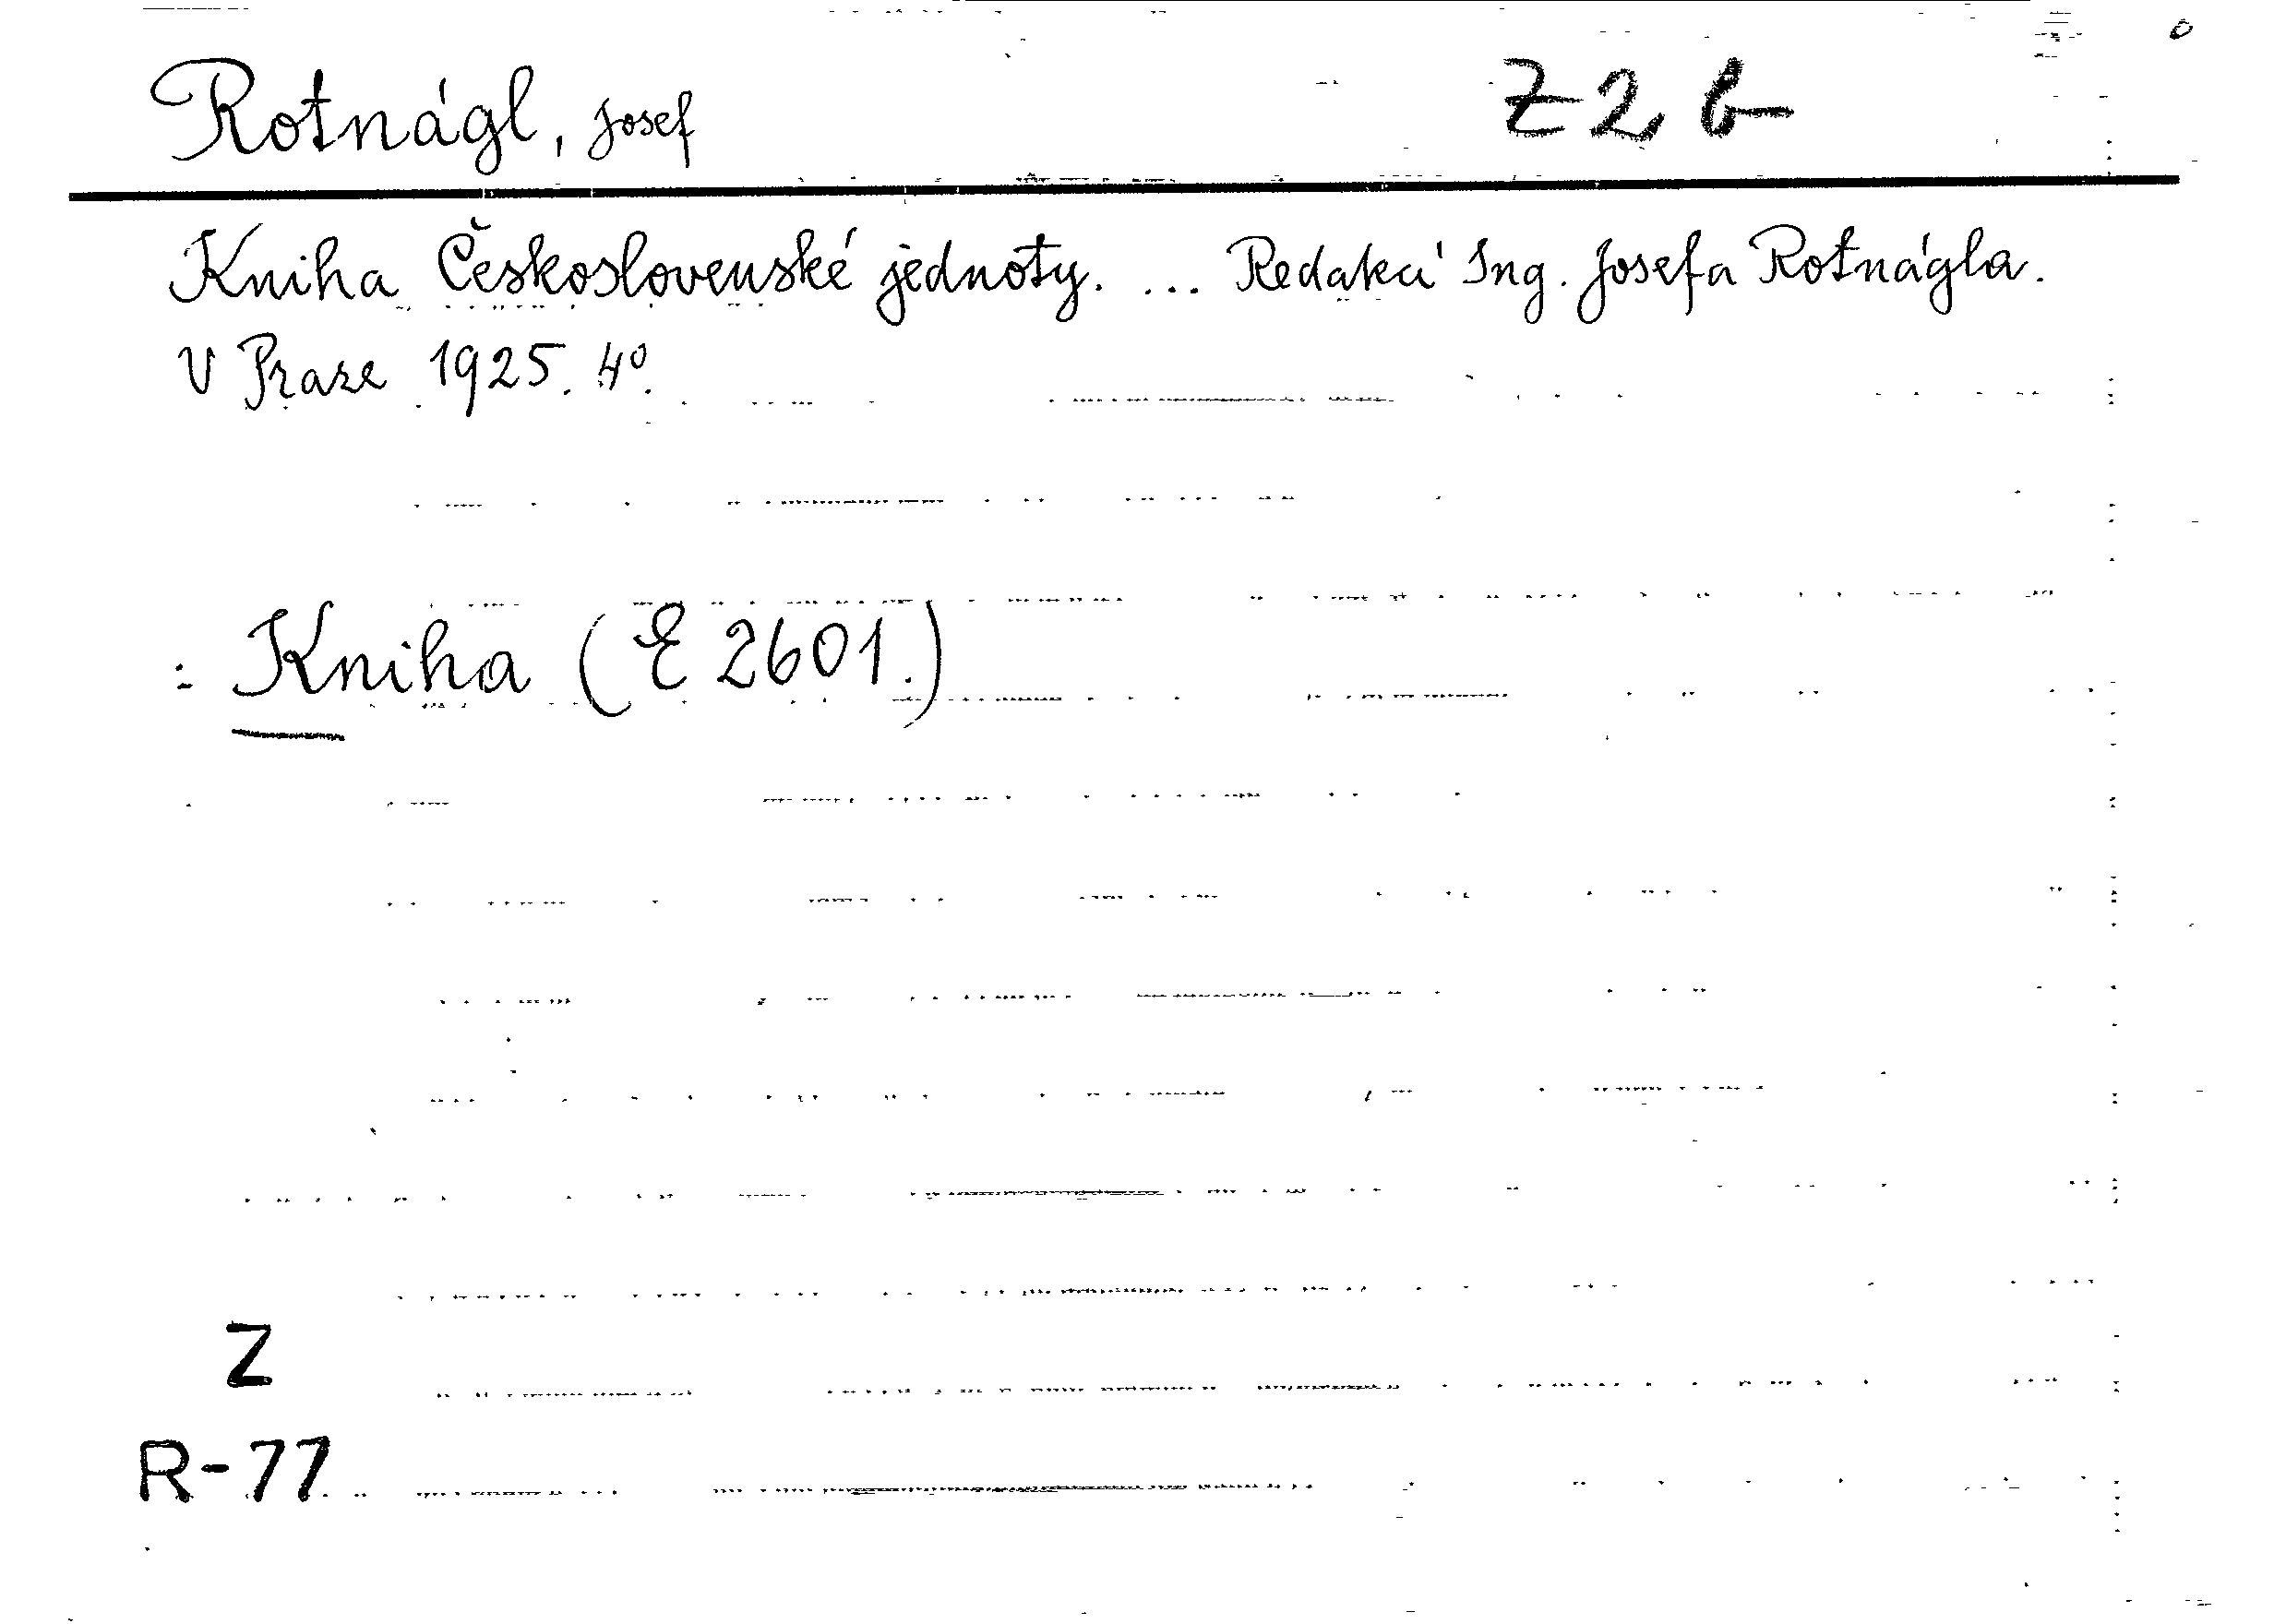 Rotnágl, Josef Z 2 b
Kniha Československé jednoty. ... Redakcí Ing. Josefa Rotnágla.
V Praze 1925. 4°.
: Kniha (E 2601.)
Z
R-77